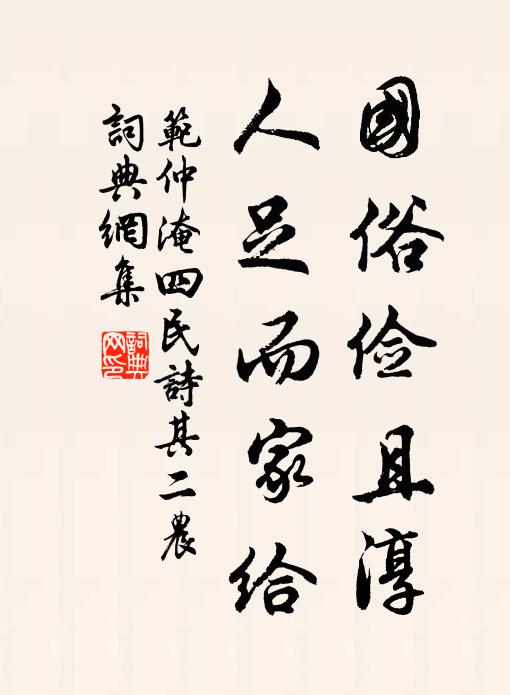 國俗儉且淳
人足而家給
範仲淹四民詩其二農
詞典網集
詞典網印